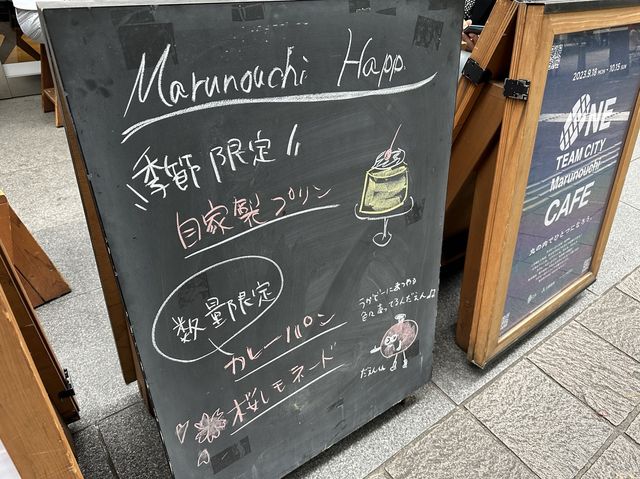 Marunouchi Happ.
季節限定
自家製プリン
数量限定
カレーパン
桜レモネード
だえん
2023.9.18 MON - 10.15 SUN
ONE
TEAM CITY
Marunouchi
CAFE
丸の内でひとつになろう。